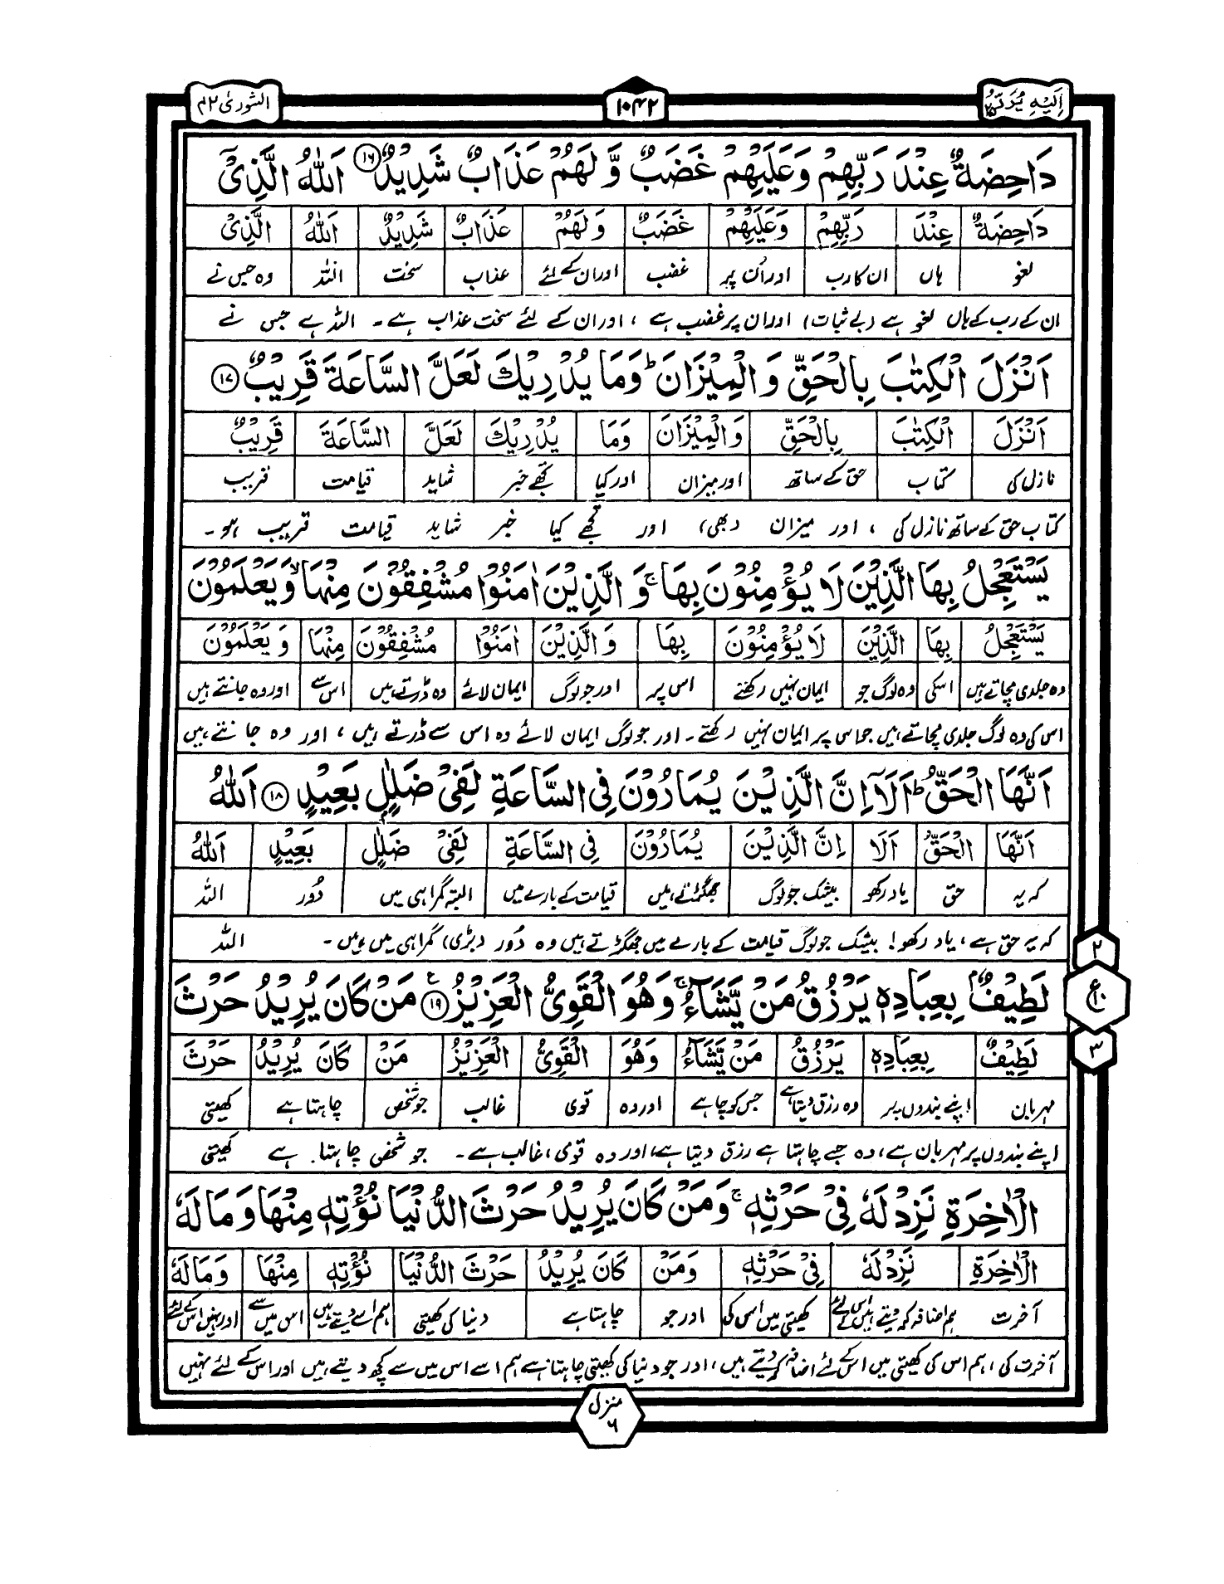 اِلَيْهِ يُرَدُّ ۲۵ ۱۰۴۲ الشورىٰ ۴۲
دَاحِضَةٌ عِنْدَ رَبِّهِمْ وَعَلَيْهِمْ غَضَبٌ وَّ لَهُمْ عَذَابٌ شَدِيْدٌ ۱۶ اَللّٰهُ الَّذِىْٓ
دَاحِضَةٌ عِنْدَ رَبِّهِمْ وَعَلَيْهِمْ غَضَبٌ وَ لَهُمْ عَذَابٌ شَدِيْدٌ اَللّٰهُ الَّذِىْٓ
لغو ہاں ان کا رب اور اُن پر غضب اور ان کے لئے عذاب سخت اللہ وہ جس نے
ان کے رب کے ہاں لغو ہے (بے ثبات) اور ان پر غضب ہے ، اور ان کے لئے سخت عذاب ہے ۔ اللہ ہے جس نے
اَنْزَلَ الْكِتٰبَ بِالْحَقِّ وَ الْمِيْزَانَ ؕ وَمَا يُدْرِيْكَ لَعَلَّ السَّاعَةَ قَرِيْبٌ ۱۷
اَنْزَلَ الْكِتٰبَ بِالْحَقِّ وَالْمِيْزَانَ وَمَا يُدْرِيْكَ لَعَلَّ السَّاعَةَ قَرِيْبٌ
نازل کی کتاب حق کے ساتھ اور میزان اور کیا تجھے خبر شاید قیامت قریب
کتاب حق کے ساتھ نازل کی ، اور میزان (بھی) اور تجھے کیا خبر شاید قیامت قریب ہو ۔
يَسْتَعْجِلُ بِهَا الَّذِيْنَ لَا يُؤْمِنُوْنَ بِهَا ۚ وَ الَّذِيْنَ اٰمَنُوْا مُشْفِقُوْنَ مِنْهَا ۙ وَ يَعْلَمُوْنَ
يَسْتَعْجِلُ بِهَا الَّذِيْنَ لَا يُؤْمِنُوْنَ بِهَا وَ الَّذِيْنَ اٰمَنُوْا مُشْفِقُوْنَ مِنْهَا وَ يَعْلَمُوْنَ
وہ جلدی مچاتے ہیں اسکی وہ لوگ جو ایمان نہیں رکھتے اس پر اور جو لوگ ایمان لائے وہ ڈرتے ہیں اس سے اور وہ جانتے ہیں
اس کی وہ لوگ جلدی مچاتے ہیں جو اس پر ایمان نہیں رکھتے ۔ اور جو لوگ ایمان لائے وہ اس سے ڈرتے ہیں ، اور وہ جانتے ہیں
اَنَّهَا الْحَقُّ ؕ اَلَاۤ اِنَّ الَّذِيْنَ يُمَارُوْنَ فِى السَّاعَةِ لَفِىْ ضَلٰلٍۭ بَعِيْدٍ ۱۸ اَللّٰهُ
اَنَّهَا الْحَقُّ اَلَا اِنَّ الَّذِيْنَ يُمَارُوْنَ فِى السَّاعَةِ لَفِىْ ضَلٰلٍ بَعِيْدٍ اَللّٰهُ
کہ یہ حق یاد رکھو بیشک جو لوگ جھگڑتے ہیں قیامت کے بارے میں البتہ گمراہی میں دُور اللہ
کہ یہ حق ہے ، یاد رکھو! بیشک جو لوگ قیامت کے بارے میں جھگڑتے ہیں وہ دُور (بڑی) گمراہی میں ہیں ۔ اللہ
لَطِيْفٌۢ بِعِبَادِهٖ يَرْزُقُ مَنْ يَّشَآءُ ۚ وَهُوَ الْقَوِىُّ الْعَزِيْزُ ۱۹ ع مَنْ كَانَ يُرِيْدُ حَرْثَ
۲
ع ۱۰
۳
لَطِيْفٌ بِعِبَادِهٖ يَرْزُقُ مَنْ يَّشَآءُ وَهُوَ الْقَوِىُّ الْعَزِيْزُ مَنْ كَانَ يُرِيْدُ حَرْثَ
مہربان اپنے بندوں پر وہ رزق دیتا ہے جس کو چاہے اور وہ قوی غالب جو شخص چاہتا ہے کھیتی
اپنے بندوں پر مہربان ہے ، وہ جسے چاہتا ہے رزق دیتا ہے ، اور وہ قوی ، غالب ہے ۔ جو شخص چاہتا ہے کھیتی
الْاٰخِرَةِ نَزِدْ لَهٗ فِىْ حَرْثِهٖ ۚ وَمَنْ كَانَ يُرِيْدُ حَرْثَ الدُّنْيَا نُؤْتِهٖ مِنْهَا وَمَا لَهٗ
الْاٰخِرَةِ نَزِدْ لَهٗ فِىْ حَرْثِهٖ وَمَنْ كَانَ يُرِيْدُ حَرْثَ الدُّنْيَا نُؤْتِهٖ مِنْهَا وَمَا لَهٗ
آخرت ہم اضافہ کر دیتے ہیں اس کے لئے کھیتی میں اس کی اور جو چاہتا ہے دنیا کی کھیتی ہم اسے دیتے ہیں اس میں سے اور نہیں اس کے لئے
آخرت کی ، ہم اس کی کھیتی میں اس کے لئے اضافہ کر دیتے ہیں ، اور جو دنیا کی کھیتی چاہتا ہے ہم اسے اس میں سے کچھ دیتے ہیں اور اس کے لئے نہیں
منزل ۶